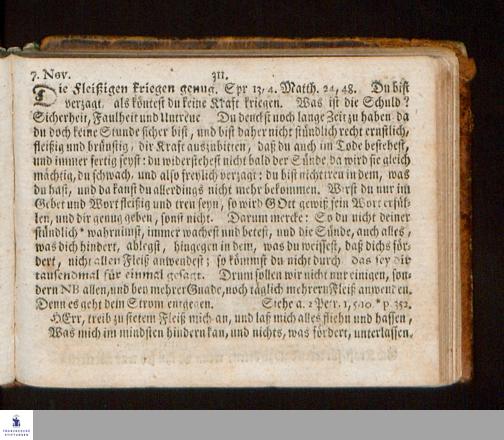 7. Nov. 311.
Die Fleißigen kriegen genug. Spr 13, 4. Matth. 24, 48. Du bist
verzagt, als köntest du keine Kraft kriegen. Was ist die Schuld?
Sicherheit, Faulheit und Untreue Du denckst noch lange Zeit zu haben, da
du doch keine Stunde sicher bist, und bist daher nicht stündlich recht ernstlich,
fleißig und brünstig, dir Kraft auszubitten, daß du auch im Tode bestehest,
und immer fertig seyst: du widerstehest nicht bald der Sünde, da wird sie gleich
mächtig, du schwach, und also freylich verzagt: du bist nicht treu in dem, was
du hast, und da kanst du allerdings nicht mehr bekommen. Wirst du nur im
Gebet und Wort fleißig und treu seyn, so wird GOtt gewiß sein Wort erfül-
len, und dir genug geben, sonst nicht. Darum mercke: So du nicht deiner
stündlich * wahrnimst, immer wachest und betest, und die Sünde, auch alles,
was dich hindert, ablegst, hingegen in dem, was du weissest, daß dichs för-
dert, nicht allen Fleiß anwendest; so kömmst du nicht durch das sey dir
tausendmal für einmal gesagt. Drum sollen wir nicht nur einigen, son-
dern NB allen, und bey mehrer Gnade, noch täglich mehrern Fleiß anwenden.
Denn es geht dem Strom entgegen. Siehe a. 2 Petr. 1, 5. 10. * p. 352.
HErr, treib zu stetem Fleiß mich an, und laß mich alles fliehn und hassen,
Was mich im mindsten hindern kan, und nichts, was fördert, unterlassen.